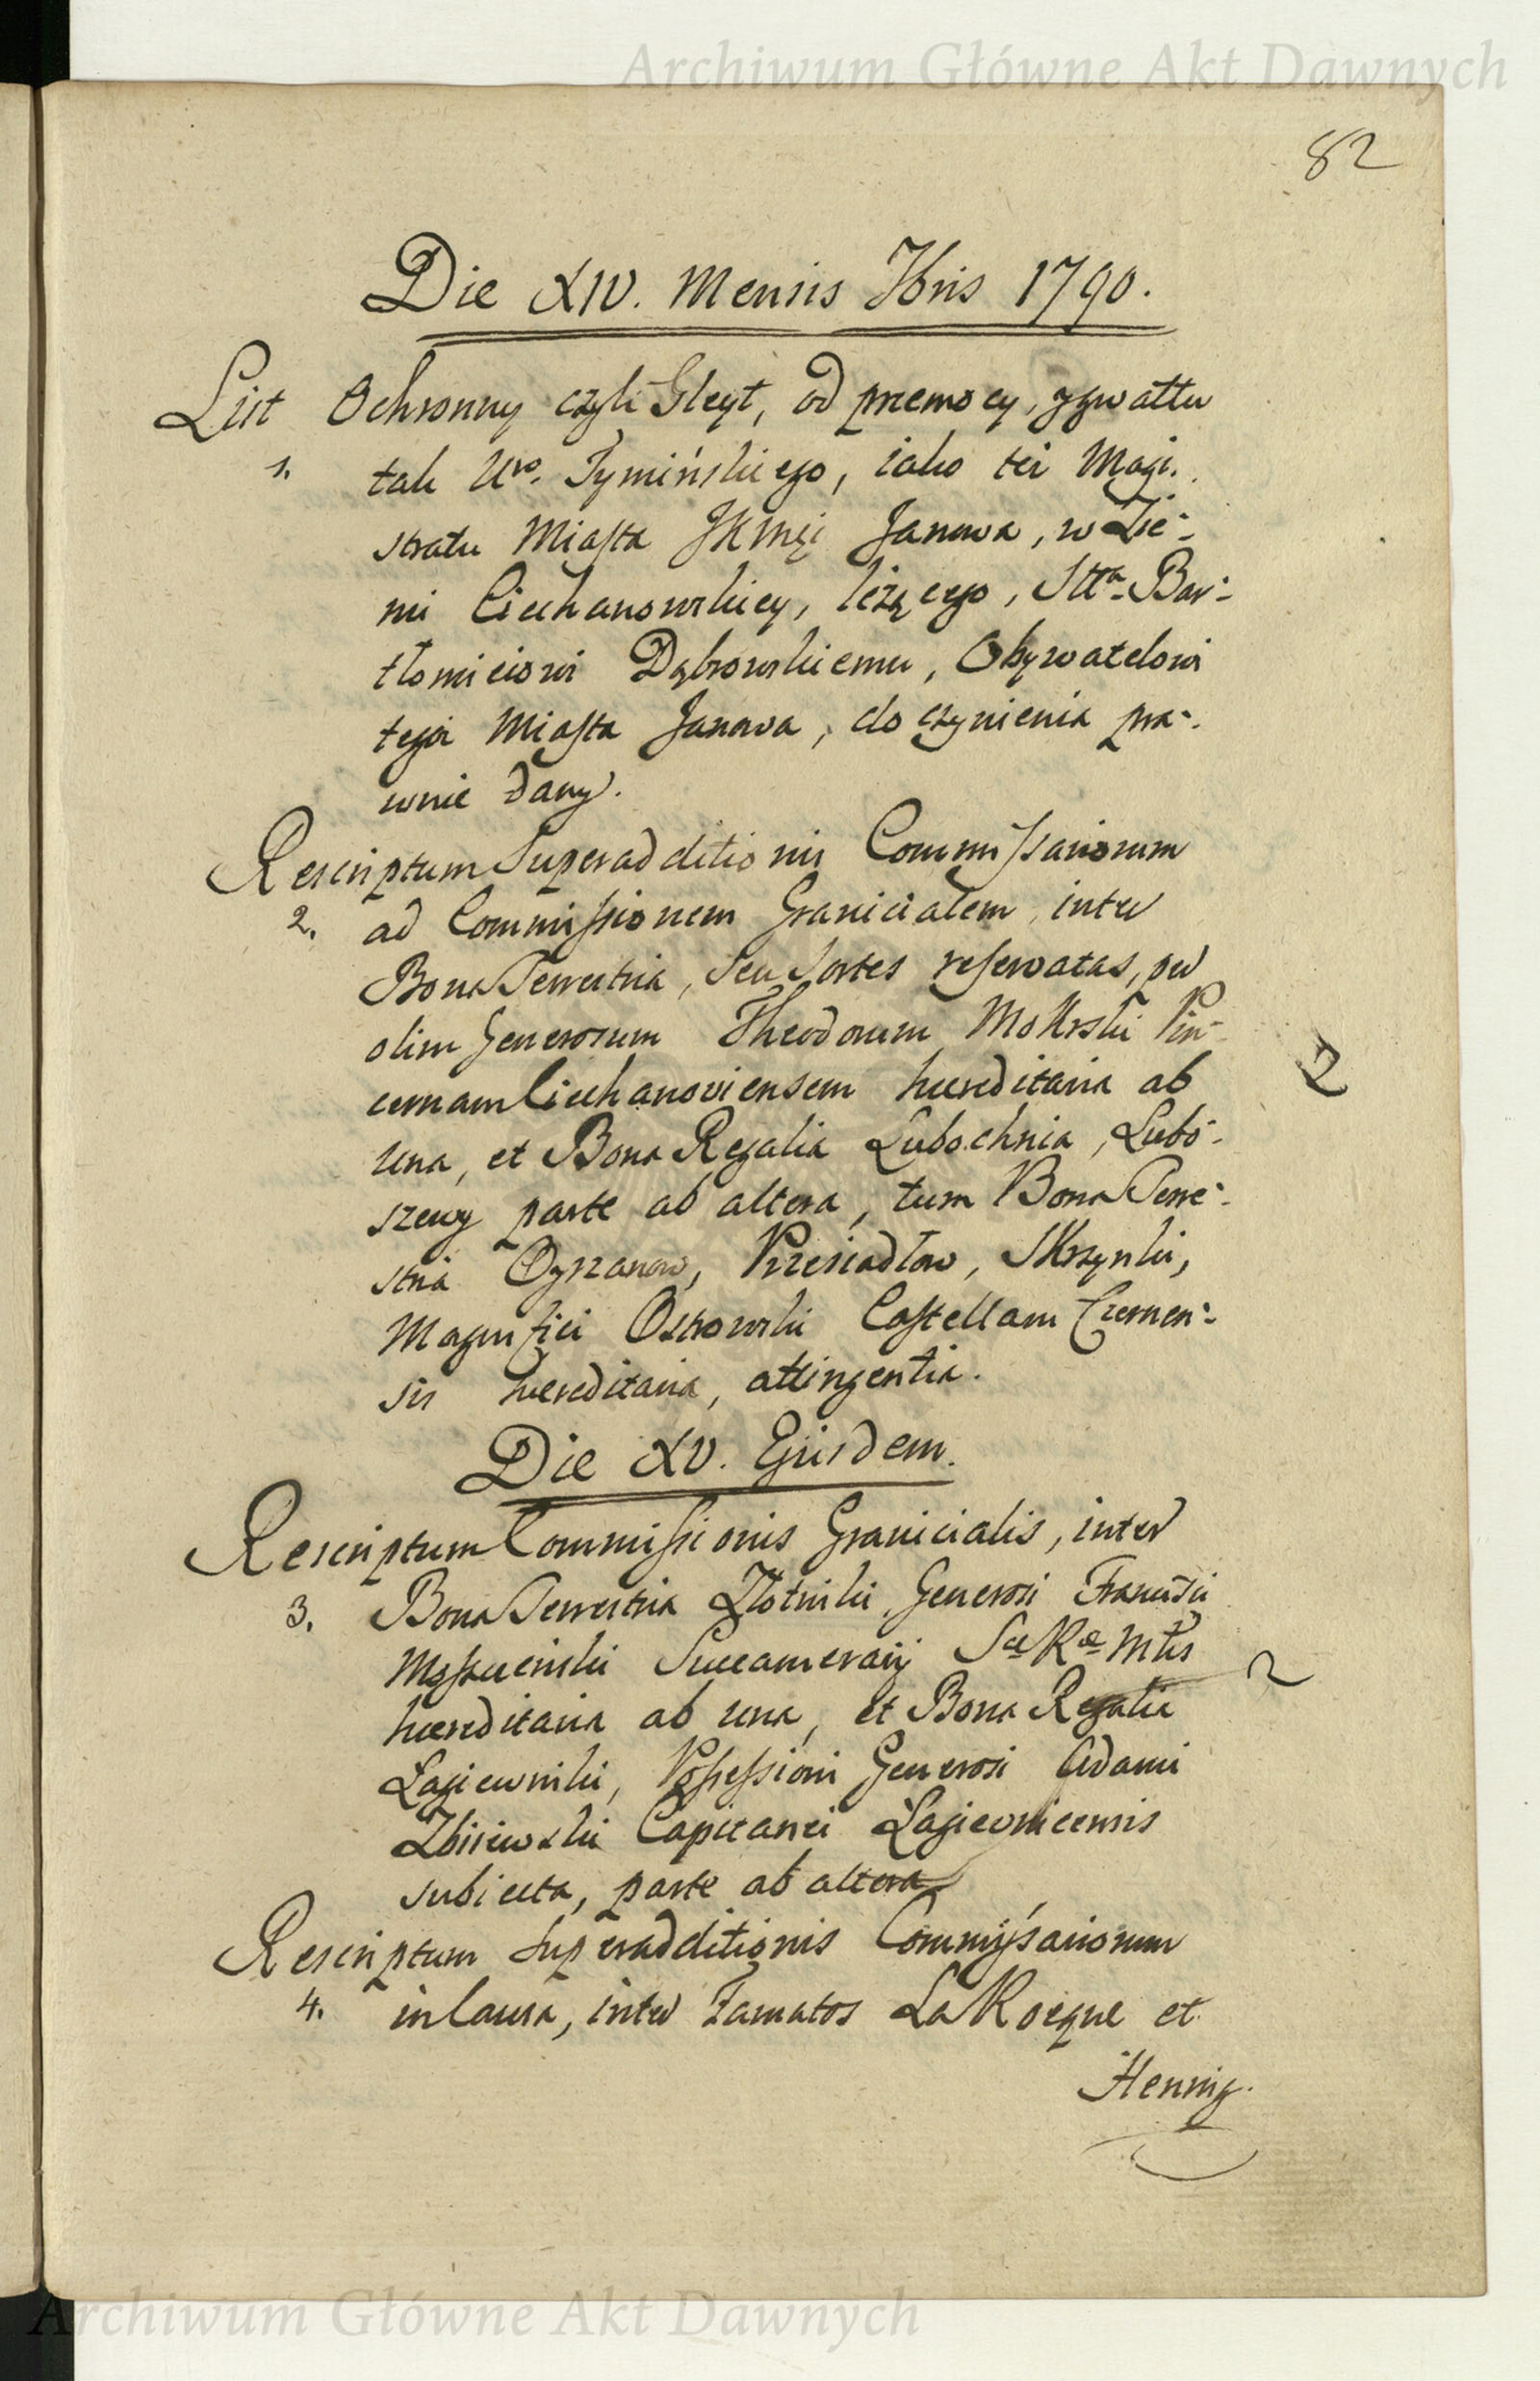 Archiwum Główne Akt Dawnych
82
Die XIV. Mensis Xbris 1790.
List Ochronny czyli Gleyt, od przemocy, y gwałtu
1. tak Uro. Tymińskiego, iako też Magi-
stratu Miasta JKMci Janowa, w Zie-
mi Ciechanowskiey, leżącego, Stta. Bar-
tłomieiowi Dąbrowskiemu, Obywatelowi
tegoż Miasta Janowa, do czynienia pra-
wnie dany.
Rescriptum Superadditionis Commissariorum
2. ad Commissionem Granicialem inter
Bona Terrestria, seu Sortes reservatas, per
olim Generosum Theodorum Mokrski Pin-
cernam Ciechanoviensem haereditaria ab
una, et Bona Regalia Lubochnia, Lubo-
szewy parte ab altera, tum Bona Terre-
stria Ojrzanow, Przesiadłow, Skrzynki,
Magnifici Ostrowski Castellani Czernen-
sis haereditaria, attingentia.
2
Die XV. Ejusdem.
Rescriptum Commissionis Granicialis, inter
3. Bona Terrestria Złotniki, Generosi Francisci
Succamerarij Sae Rae Mtis
haereditaria ab una, et Bona Regalia
2
Łagiewniki, Possessioni Generosi Adami
Zbiiewski Capitanei Łagiewnicensis
subiecta, parte ab altera
Rescriptum Superadditionis Commissariorum
4. in Causa, inter Famatos La Rocque et
Hennig.
Archiwum Główne Akt Dawnych